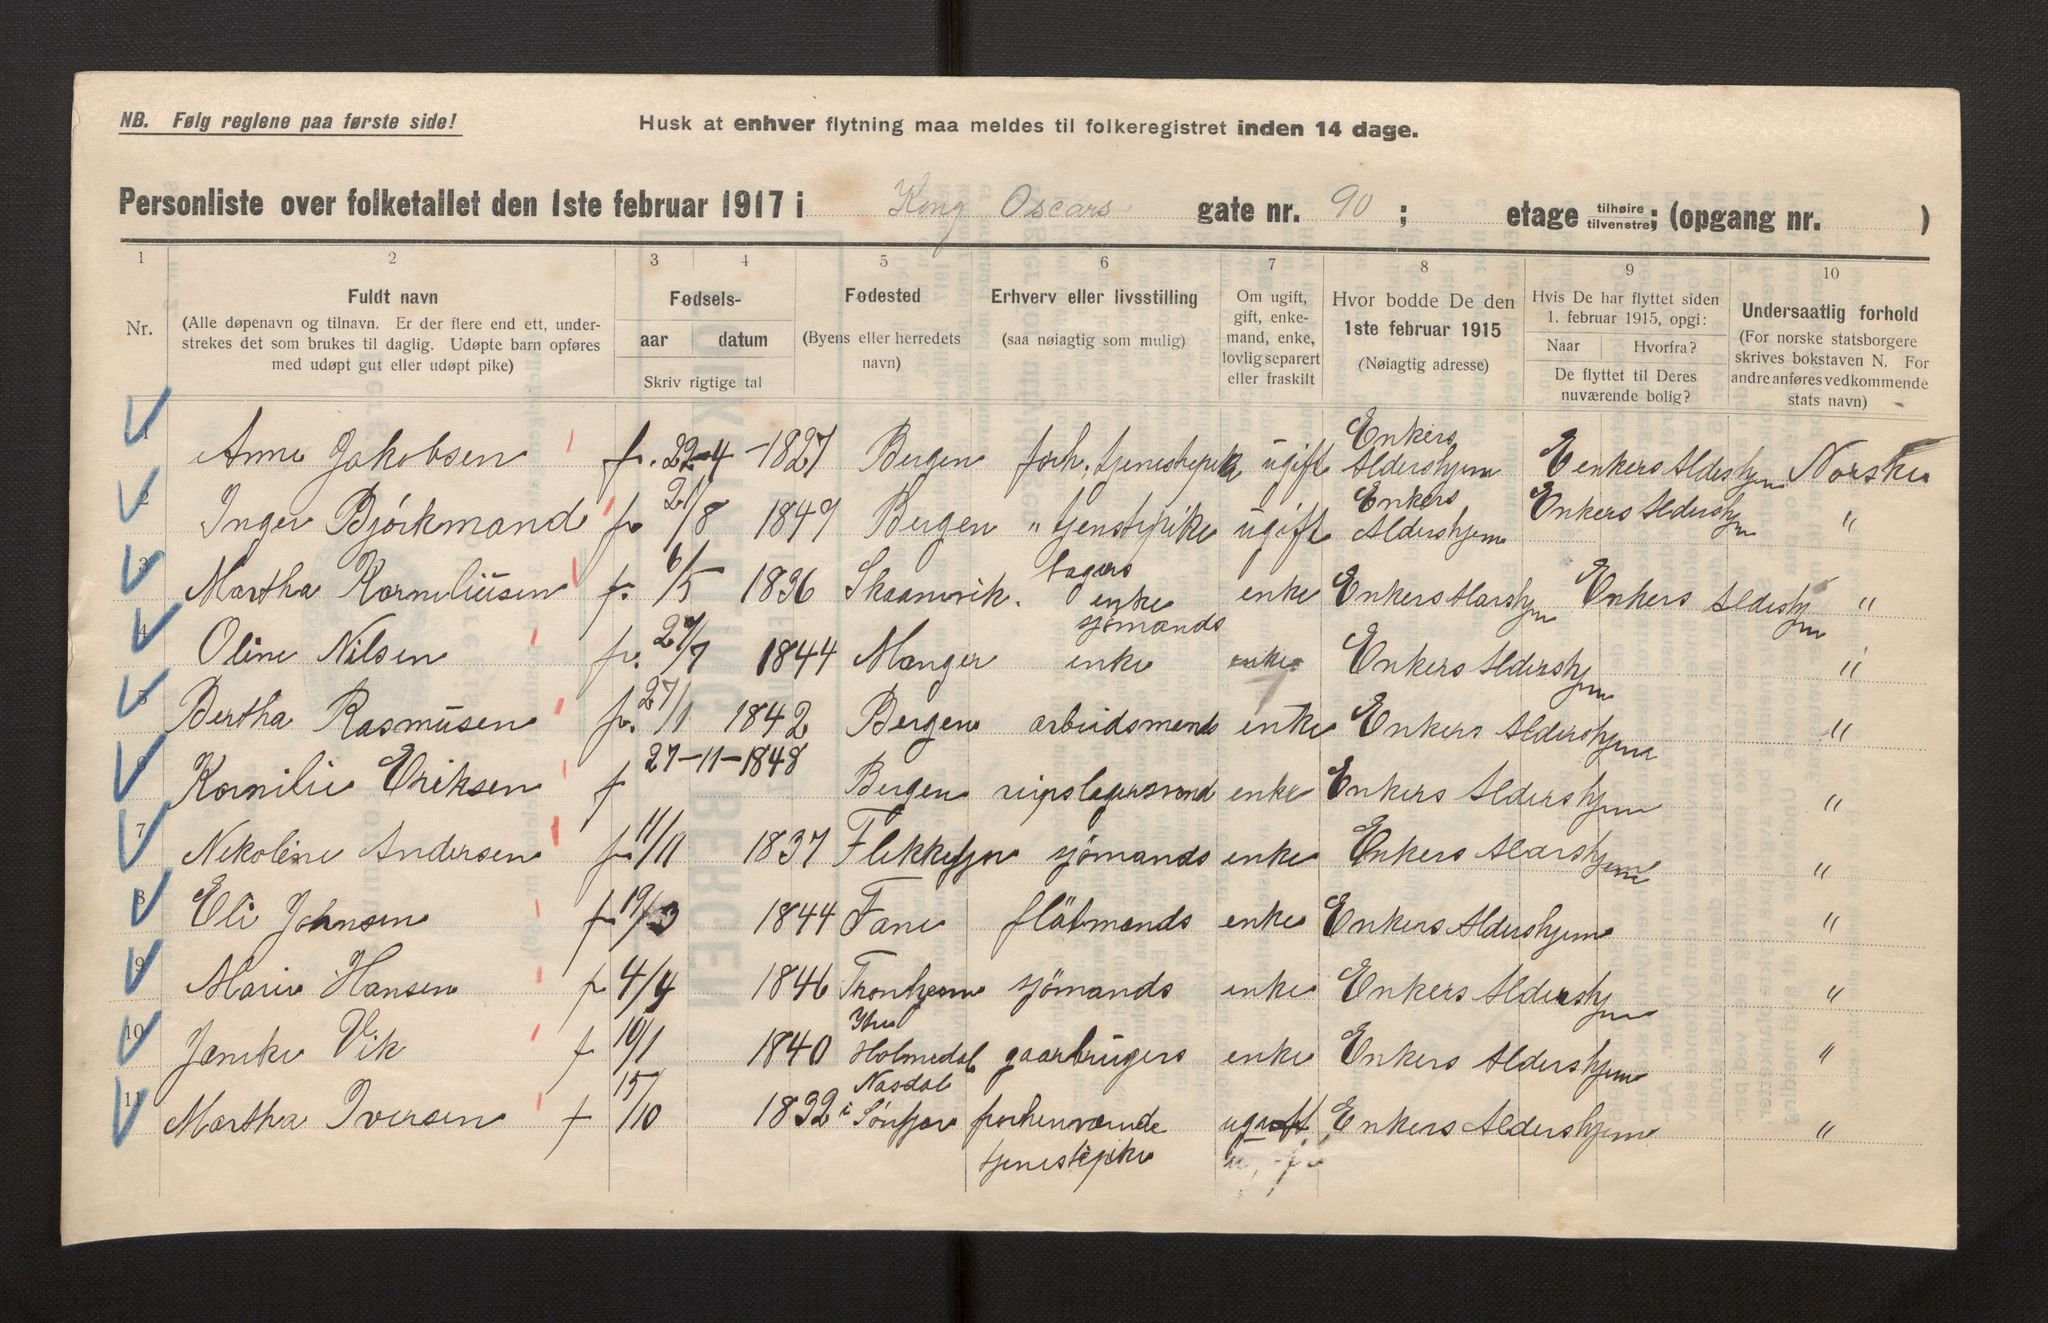 NB. Følg reglene paa første side!
Husk at enhver flytning maa meldes til folkeregistret inden 14 dage.
Personliste over folketallet den 1ste februar 1917 i Kong Oscars gate nr. 90 ; etage tilhøire tilvenstre; (opgang nr. )
1 2 3 4 5 6 7 8 9 10
Nr.
Fuldt navn
(Alle døpenavn og tilnavn. Er der flere end ett, under-
strekes det som brukes til daglig. Udøpte barn opføres
med udøpt gut eller udøpt pike)
Fødsels-
aar datum
Skriv rigtige tal
Fødested
(Byens eller herredets
navn)
Erhverv eller livsstilling
(saa nøiagtig som mulig)
Om ugift,
gift, enke-
mand, enke,
lovlig separert
eller fraskilt
Hvor bodde De den
1ste februar 1915
(Nøiagtig adresse)
Hvis De har flyttet siden
1. februar 1915, opgi:
Naar Hvorfra?
De flyttet til Deres
nuværende bolig?
Undersaatlig forhold
(For norske statsborgere
skrives bokstaven N. For
andre anføres vedkommende
stats navn)
1 Anne Jakobsen f. 22-4-1827 Bergen forh. tjenestepike ugift Enkers Aldershjem Enkers Aldershjem Norske
2 Inger Bjørkmand f. 21/8 1849 Bergen " tjenstepike ugift Enkers Aldershjem Enkers Aldershjem "
3 Martha Korneliusen f. 6/5 1836 Skaanevik bagers enke enke Enkers Alarshjem Enkers Aldershjem "
4 Oline Nilsen f. /7 1844 Manger sjömands enke enke Enkers Aldershjem "
5 Bertha Rasmusen f. 27/1 1842 Bergen arbeidsmands enke Enkers Aldershjem "
6 Kornilie Eriksen f 27-11-1848 Bergen reipslagersmand enke Enkers Aldershjem "
7 Nekoline Andersen f 11/11 1837 Flekkefjor sjömands enke Enkers Alarshjem "
8 Eli Johnsen f 19/3 1844 Fane flöbmands enke Enkers Aldershjem "
9 Marie Hansen f 4/9 1846 Tronhjem sjömands enke Enkers Aldershjem "
10 Janike Vik f 10/1 1840 Holmedal gaarbrugers enke Enkers Aldershjem "
11 Martha Iversen f 15/10 1832 Nasdal i Sönfjor forhenværende ugift Enkers Aldershjem "
tjenestepike